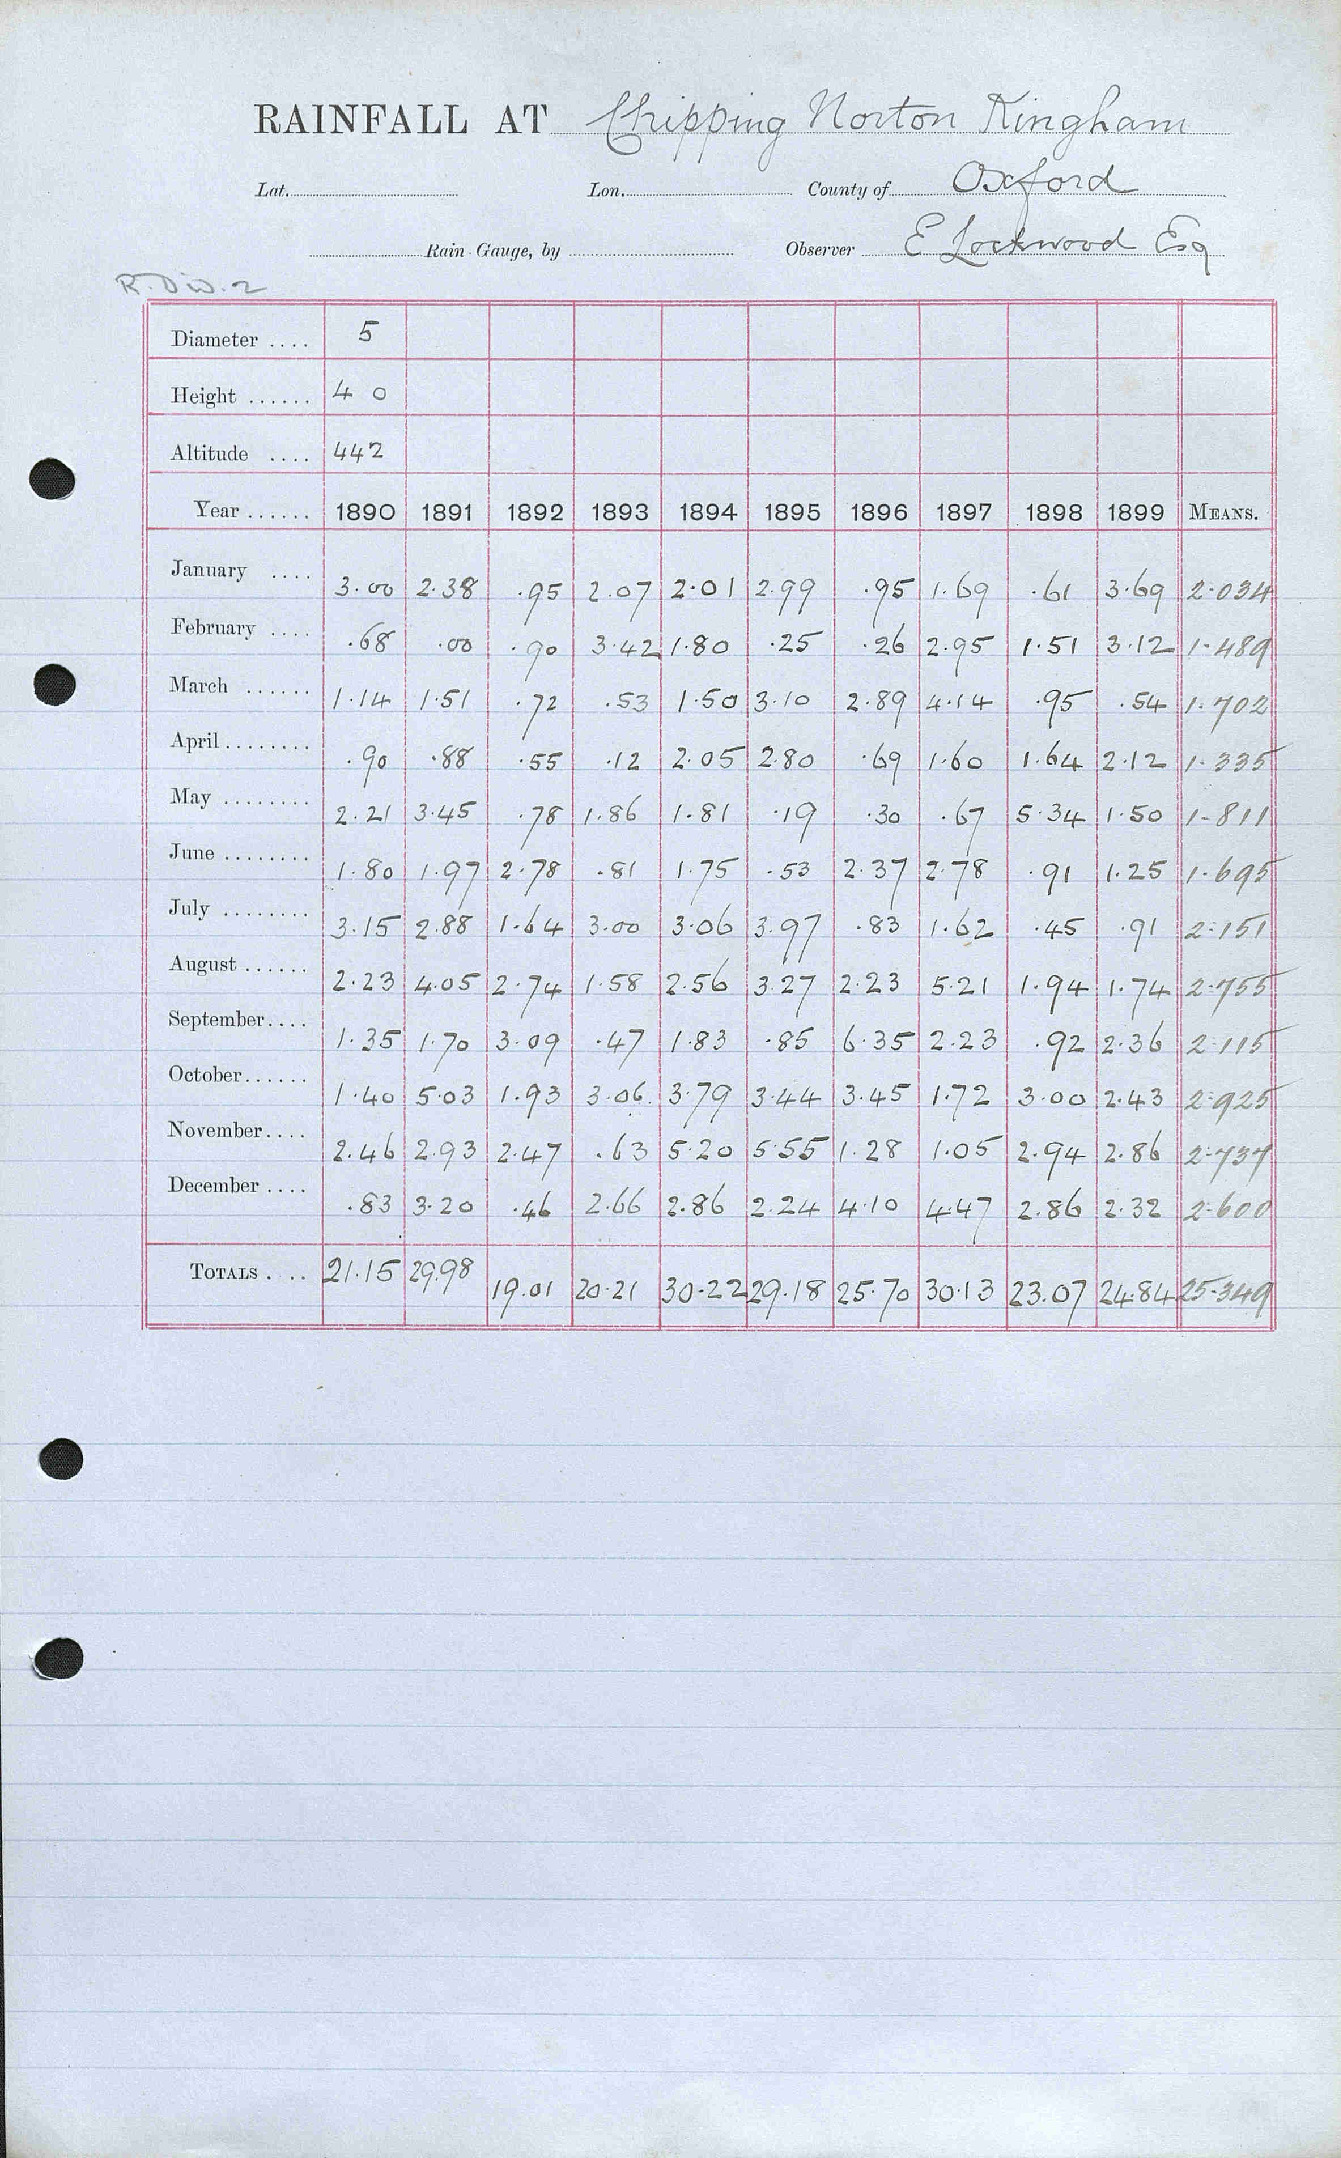 RAINFALL AT Chipping Norton Kingham
Lat. Lon. County of Oxford
Rain Gauge, by Observer E Lockwood Esq
R. Div. 2
Diameter .... 5
Height ...... 4 0
Altitude .... 442
Year ...... 1890 1891 1892 1893 1894 1895 1896 1897 1898 1899 MEANS.
January .... 3.00 2.38 .95 2.07 2.01 2.99 .95 1.69 .61 3.69 2.034
February .... .68 .00 .90 3.42 1.80 .25 .26 2.95 1.51 3.12 1.489
March ...... 1.14 1.51 .72 .53 1.50 3.10 2.89 4.14 .95 .54 1.702
April ........ .90 .88 .55 .12 2.05 2.80 .69 1.60 1.64 2.12 1.335
May ........ 2.21 3.45 .78 1.86 1.81 .19 .30 .67 5.34 1.50 1.811
June ........ 1.80 1.97 2.78 .81 1.75 .53 2.37 2.78 .91 1.25 1.695
July ........ 3.15 2.88 1.64 3.00 3.06 3.97 .83 1.62 .45 .91 2.151
August ...... 2.23 4.05 2.74 1.58 2.56 3.27 2.23 5.21 1.94 1.74 2.755
September .... 1.35 1.70 3.09 .47 1.83 .85 6.35 2.23 .92 2.36 2.115
October ...... 1.40 5.03 1.93 3.06 3.79 3.44 3.45 1.72 3.00 2.43 2.925
November .... 2.46 2.93 2.47 .63 5.20 5.55 1.28 1.05 2.94 2.86 2.737
December .... .83 3.20 .46 2.66 2.86 2.24 4.10 4.47 2.86 2.32 2.600
TOTALS .... 21.15 29.98 19.01 20.21 30.22 29.18 25.70 30.13 23.07 24.84 25.349